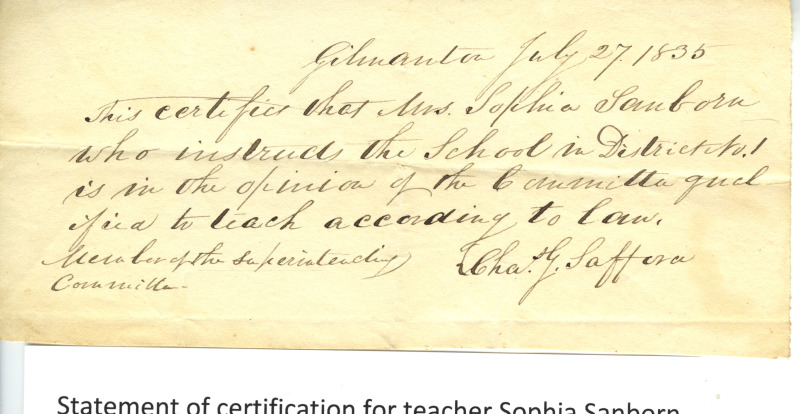 Gilmanton July 27. 1835
This certifies that Mrs. Sophia Sanborn
who instructs the School in District No. 1
is in the opinion of the Committee qual
ified to teach according to law.
Member of the superintending
Committee
Chas. G. Safford
Statement of certification for teacher Sophia Sanborn